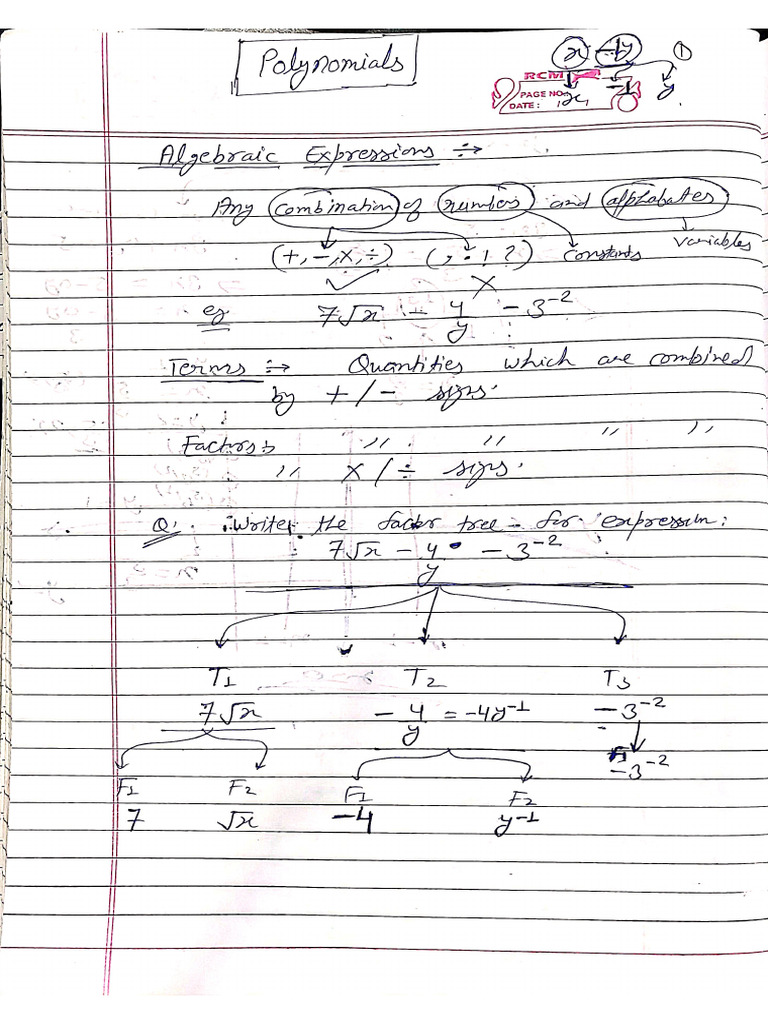 Polynomials
x -1y ①
RCM
PAGE NO.:
DATE:
x -1 y
Algebraic Expressions :→
Any combination of numbers and alphabates
(+, -, ×, ÷) (, ; ! ?) constants variables
✓ ×
eg 7√x - 4/y - 3⁻²
Terms :→ Quantities which are combined
by + / - signs.
Factors :→ " " " "
" × / ÷ signs.
Q. Write the factor tree for expression:
7√x - 4/y - 3⁻²
T1 T2 T3
7√x - 4/y = -4y⁻¹ - 3⁻²
F1 F2 F1 F2 -3⁻²
7 √x -4 y⁻¹